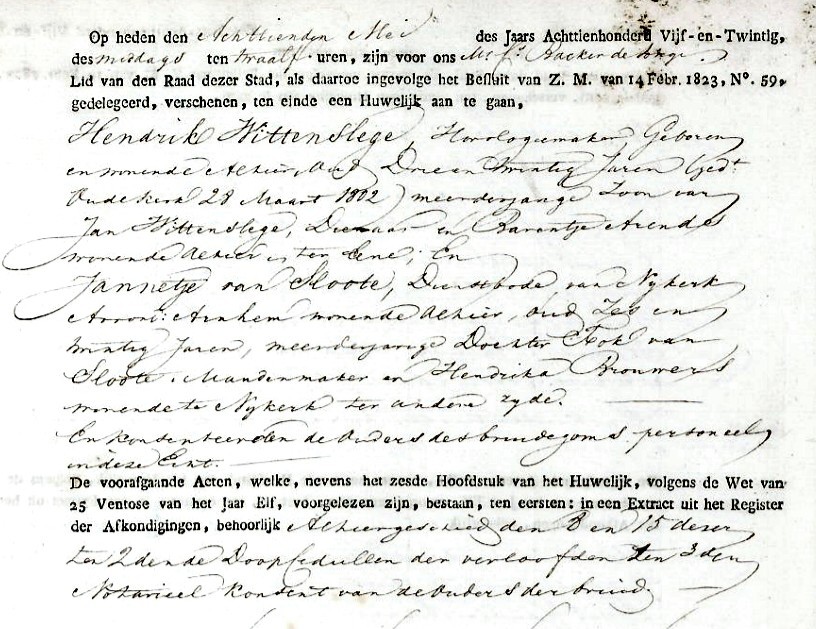 Op heden den Achttienden Mei des Jaars Achttienhonderd Vijf-en-Twintig,
des middags ten twaalf uren, zijn voor ons Mr. Backer
Lid van den Raad dezer Stad, als daartoe ingevolge het Besluit van Z. M. van 14 Febr. 1823, No. 59,
gedelegeerd, verschenen, ten einde een Huwelijk aan te gaan,
Hendrik Wittenslege, Horologiemaker, Geboren
en wonende Alhier, Oud Drie en twintig Jaren (ged.t
Oude Kerk 28 Maart 1802) meerderjarige Zoon van
Jan Wittenslege, Dienaar en Barentje Arends
wonende Alhier ter Eene; En
Jannetje van Sloote, Dienstbode, van Nykerk
Arrond: Arnhem wonende Alhier, Oud Zes en
twintig Jaren, meerderjarige Dochter van
Sloote, Mandenmaker en Hendrika Brouwers
wonende te Nykerk ter andere zyde.
En konsenteerden de Ouders des bruidegoms personeel
in deze Echt.
De voorafgaande Acten, welke, nevens het zesde Hoofdstuk van het Huwelijk, volgens de Wet van
25 Ventose van het Jaar Elf, voorgelezen zijn, bestaan, ten eersten: in een Extract uit het Register
der Afkondigingen, behoorlijk Alhier geschied den 8 en 15 dezer
ten 2den de Doopcedullen der verloofden ten 3den
Notarieel Konsent van de Ouders der bruid.